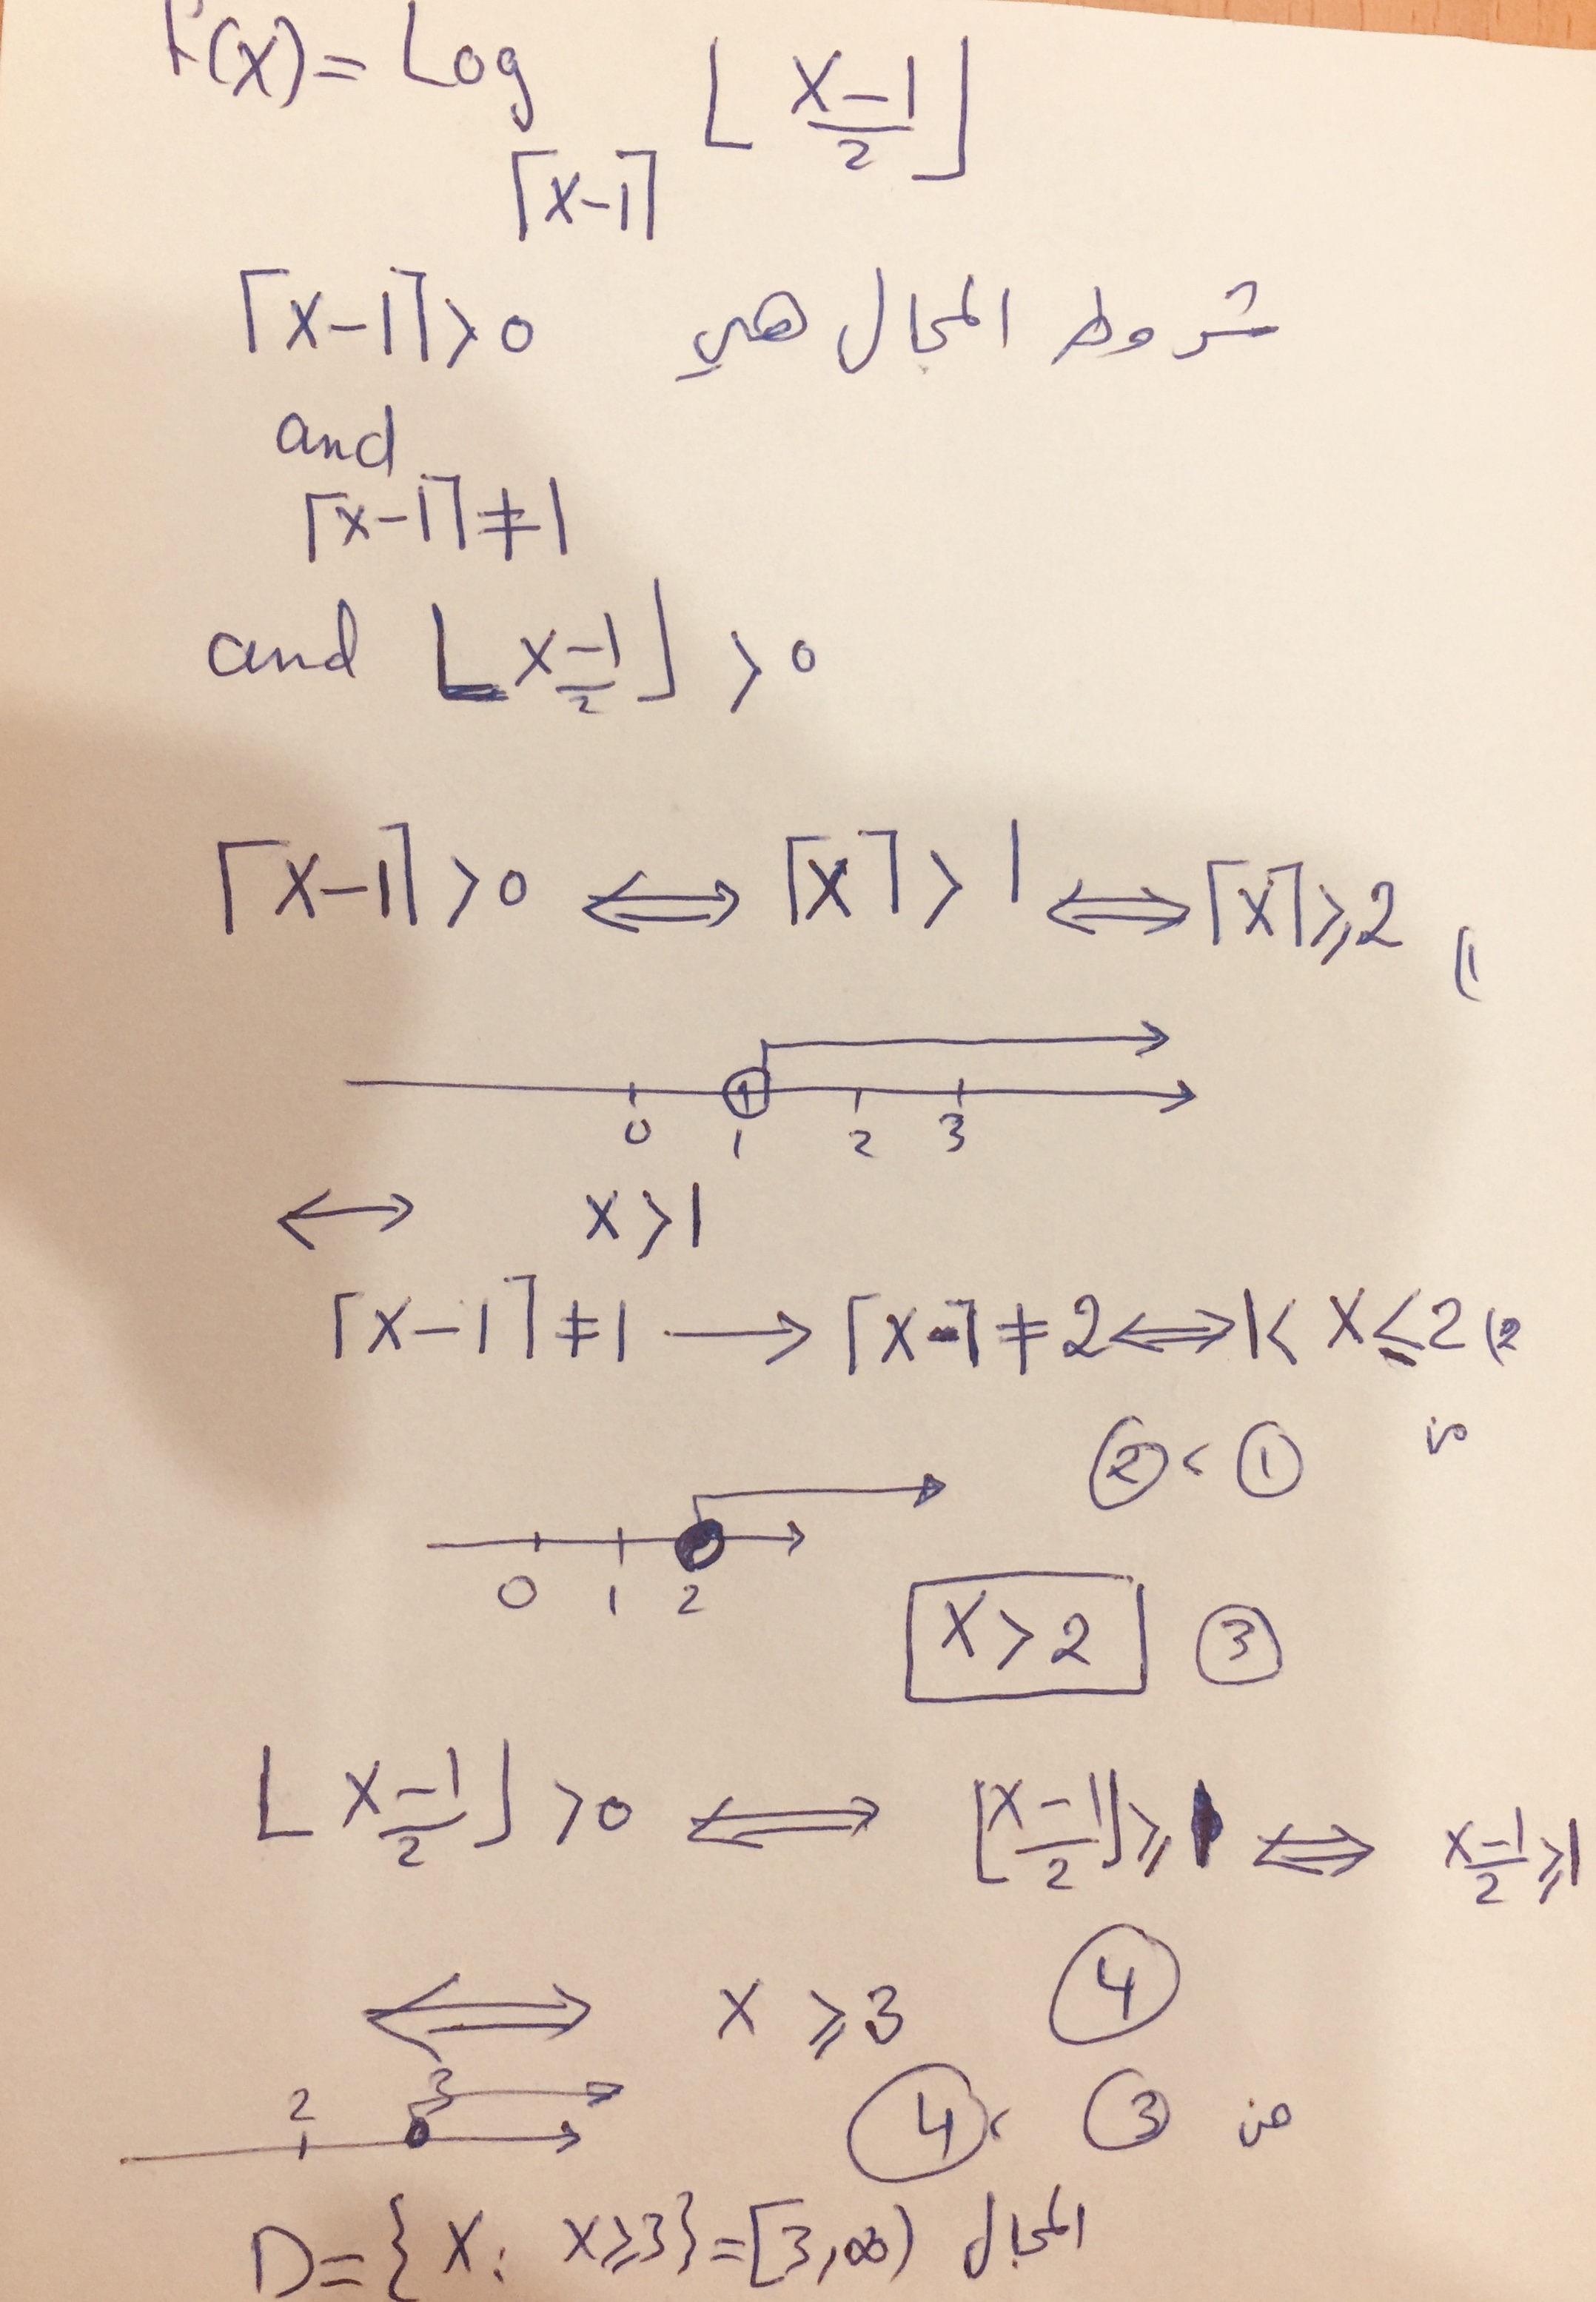 F(x) = Log⌈x-1⌉ ⌊(x-1)/2⌋
شروط المجال هي ⌈x-1⌉ > 0
and
⌈x-1⌉ ≠ 1
and ⌊(x-1)/2⌋ > 0
⌈x-1⌉ > 0 ⟺ ⌈x⌉ > 1 ⟺ ⌈x⌉ ⩾ 2 (1
0 1 2 3
↔ x > 1
⌈x-1⌉ ≠ 1 → ⌈x⌉ ≠ 2 ⟺ 1 < x ≤ 2 (2
من ① ، ②
0 1 2
x > 2 ③
⌊(x-1)/2⌋ > 0 ⟺ ⌊(x-1)/2⌋ ⩾ 1 ⟺ (x-1)/2 ⩾ 1
⟺ x ⩾ 3 ④
من ③ ، ④
2 3
D = {x : x ⩾ 3} = [3, ∞) المجال